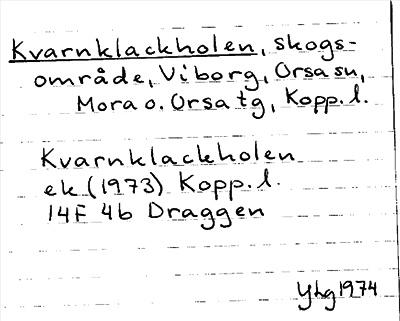 Kvarnklackholen, skogs-
område, Viborg, Orsa sn,
Mora o. Orsa tg, Kopp. l.
Kvarnklackholen
ek (1973) Kopp. l.
14F 4b Draggen
Yhg 1974